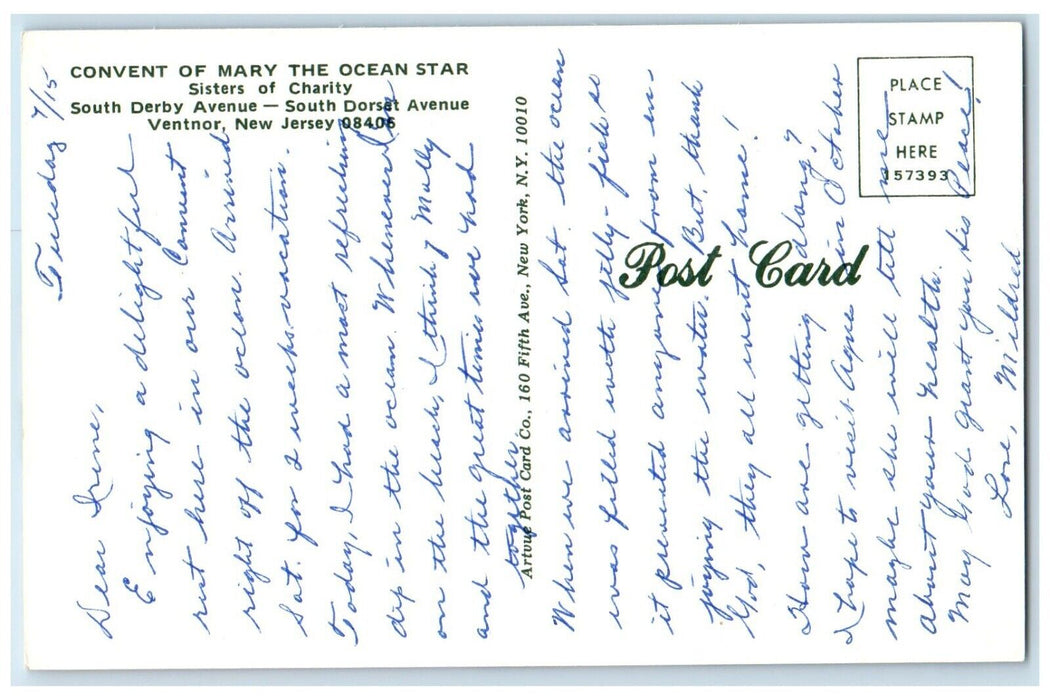 CONVENT OF MARY THE OCEAN STAR
Sisters of Charity
South Derby Avenue — South Dorset Avenue
Ventnor, New Jersey 08406
Tuesday 7/15
Dear Irene,
Enjoying a delightful
rest here in our Convent
right off the ocean. Arrived
Sat. for 2 weeks vacation.
Today, I had a most refreshing
dip in the ocean. Whenever I'm
on the beach, I think of Mully
and the great times we had
together.
Artvue Post Card Co., 160 Fifth Ave., New York, N.Y. 10010
PLACE
STAMP
HERE
157393
Post Card
When we arrived Sat. the ocean
was filled with jelly-fish so
it prevented anyone from en-
joying the water. But, thank
God, they all went home!
How are getting along?
I hope to visit Agnes in October
maybe she will tell me
about your health.
May God grant you His Peace!
Love, Mildred